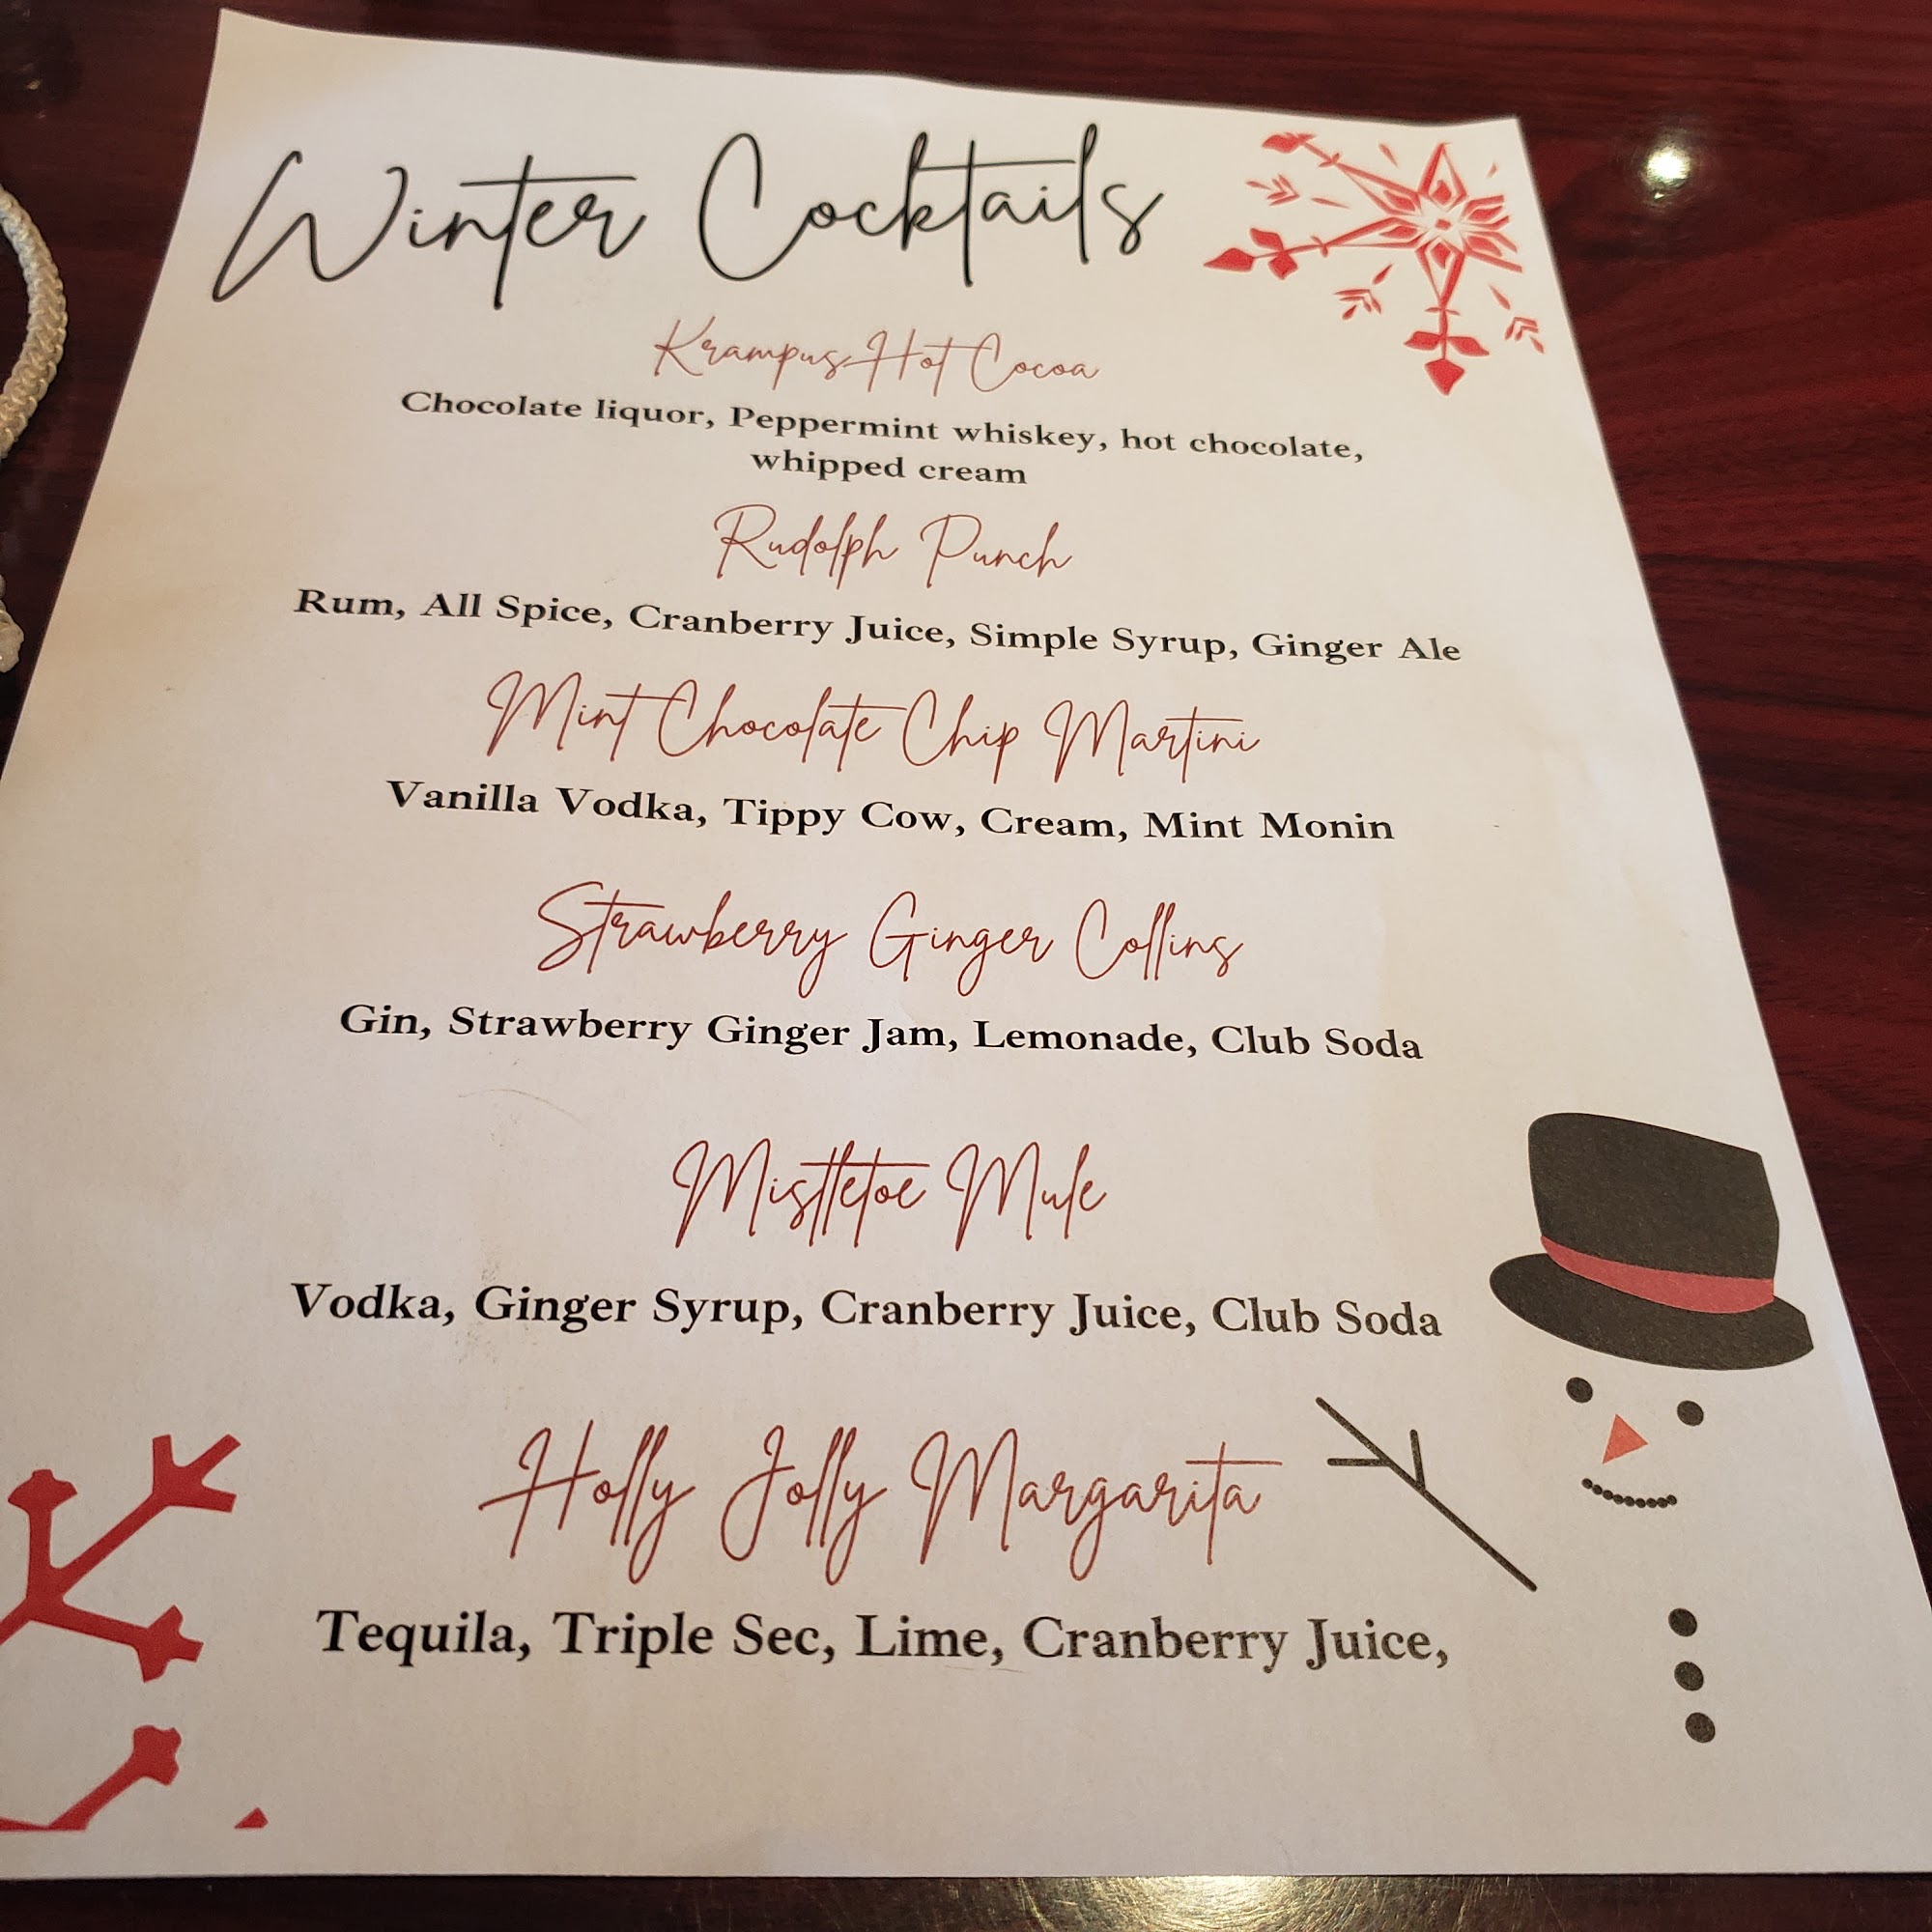 Winter Cocktails
Krampus Hot Cocoa
Chocolate liquor, Peppermint whiskey, hot chocolate,
whipped cream
Rudolph Punch
Rum, All Spice, Cranberry Juice, Simple Syrup, Ginger Ale
Mint Chocolate Chip Martini
Vanilla Vodka, Tippy Cow, Cream, Mint Monin
Strawberry Ginger Collins
Gin, Strawberry Ginger Jam, Lemonade, Club Soda
Mistletoe Mule
Vodka, Ginger Syrup, Cranberry Juice, Club Soda
Holly Jolly Margarita
Tequila, Triple Sec, Lime, Cranberry Juice,